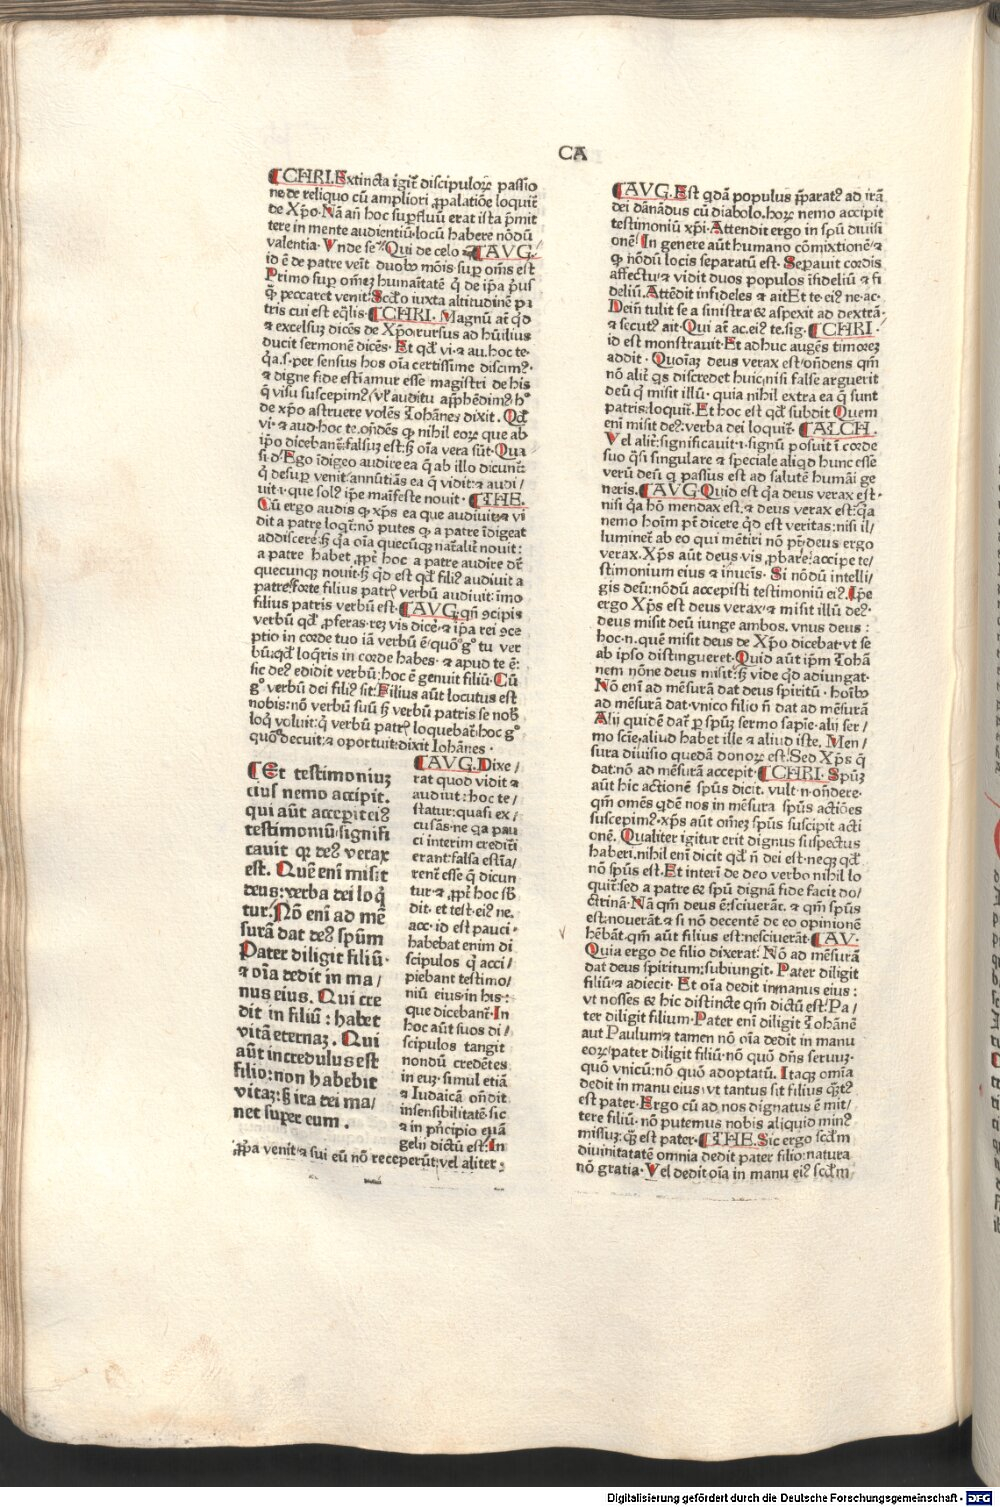 CA
CHRI. Extincta igit̃ discipuloꝝ passio
ne de reliquo cũ ampliori ꝓpalatiõe loquit̃
de Xp̃o. Nã añ hoc sup̱fluũ erat ista p̃mit
tere in mente audientiũ locũ habere nõdũ
valentia. Vnde seq̃r Qui de celo ⁊ AVG.
id ẽ de patre veit̃ duobꝰ mõis sup̱ om̃s est
Primo sup̱ omẽꝫ humaĩtatẽ q̃ de ip̃a p̃us
q̃ꝫ peccaret venit. Scd̃o iuxta altitudinẽ pa
tris cui est eq̃lis. CHRI. Magnũ aũt q̃d
⁊ excelsuꝫ dicẽs de Xp̃o rursus ad hũilius
ducit sermonẽ dicẽs. Et qd̃ vi. ⁊ au. hoc te.
q̃a. s. per sensus hos oĩa certissime discimꝰ.
⁊ digne fide estĩamur esse magistri de his
q̃ visu suscepimꝰ vl̓ auditu app̃hẽdimꝰ hꝰ
de xp̃o astruere volẽs Iohãneꝫ dixit. Qd̃
vi. ⁊ aud. hoc te. oñdẽs ꝙ nihil eoꝝ que ab
ip̃o dicebant̃ falsuꝫ est: sꝫ oĩa vera sũt. Qua
si d. Ego ĩdigeo audire ea q̃ ab illo dicunt̃
q̃ desup̱ venit: annũtiãs ea q̃ vidit: ⁊ audi/
uit. i. que solꝰ ip̃e maĩfeste nouit. THE.
Cũ ergo audis ꝙ xp̃s ea que audiuit: ⁊ vi
dit a patre loq̃t̃: nõ putes ꝙ a patre ĩdigeat
addiscere: sꝫ q̃a oĩa quecũqꝫ nat̃alit̃ nouit:
a patre habet, ꝓpt̃ hoc a patre audire dr̃
quecunqꝫ nouit: sꝫ q̃d est qd̃ filiꝰ audiuit a
patre: forte filius patrꝭ verbũ audiuit: imo
filius patris verbũ est. AVG. qñ ↄcipis
verbũ qd̃ ꝓferas. reꝫ vis dicẽ: ⁊ ip̃a rei ↄce
ptio in corde tuo iã verbũ ẽ: quõ gͦ tu ver
bũ: qd̃ loq̃ris in corde habes. ⁊ apud te ẽ:
sic deꝰ edidit verbũ: hoc ẽ genuit filiũ. Cũ
gͦ verbũ dei filiꝰ sit: Filius aũt locutus est
nobis: nõ verbũ suũ sꝫ verbũ patris se nobꝭ
loq̃ voluit: q̃ verbũ patrꝭ loquebat̃: hoc gͦ
quõ decuit: ⁊ oportuit: dixit Iohãnes.
Et testimoniuꝫ
eius nemo accipit.
qui aũt acceperit eiꝰ
testimoniũ: signifi
cauit qꝛ deꝰ verax
est. Quẽ eni misit
deus: verba dei loq̃
tur. Nõ eni ad mẽ
surã dat deꝰ spũm
Pater diligit filiũ.
⁊ oĩa dedit in ma/
nus eius. Qui cre
dit in filiũ: habet
vitã eternaꝫ. Qui
aũt incredulus est
filio: non habebit
vitaꝫ: sꝫ ira dei ma/
net super eum.
AVG. Dixe/
rat quod vidit ⁊
audiut: hoc te/
statur: quasi ex/
cusãs: ne q̃a pau
ci interim crediti
erant: falsa estĩa/
rent̃ esse q̃ dicun
tur: ⁊ ꝓpt̃ hoc sb̃
dit. et test. eiꝰ ne.
acc. id est pauci.
habebat enim di
scipulos q̃ acci/
piebant testimo/
niũ eius in his:
que dicebant̃. In
hoc aũt suos di/
scipulos tangit
nondũ credẽtes
in euꝫ. simul etiã
⁊ Iudaicã oñdit
insensibilitatẽ: sic
⁊ in pñcipio euã
gelij dictũ est: In
ꝓp̱a venit: ⁊ sui eũ nõ receperũt: vel aliter:
AVG. Est q̃dã populus p̃paratꝰ ad irã
dei dãnãdus cũ diabolo. hoꝝ nemo accipit
testimoniũ xp̃i. Attendit ergo in spũ diuisi
onẽ. In genere aũt humano cõmixtionẽ: ⁊
ꝙ nõdũ locis separatũ est. Sep̱auit cordis
affectu: ⁊ vidit duos populos ĩfideliũ ⁊ fi
deliũ. Attẽdit infideles ⁊ ait Et te. eiꝰ ne. ac.
Dein̄ tulit se a sinistra: ⁊ aspexit ad dextrã.
⁊ secutꝰ ait. Qui aũt ac. eiꝰ te. sig. CHRI.
id est monstrauit. Et adhuc augẽs timoreꝫ
addit. Quoĩaꝫ deus verax est: oñdens qm̃
nõ alit̃ q̃s discredet huic: nisi false arguerit
deũ q̃ misit illũ. quia nihil extra ea q̃ sunt
patris: loquit̃. Et hoc est qd̃ subdit Quem
eni misit deꝰ: verba dei loquit̃. ALCH.
Vel alit̃: significauit. i. signũ posuit ĩ corde
suo q̃si singulare ⁊ speciale aliq̃d hunc esse
verũ deũ q̃ passus est ad salutẽ humãi ge
neris. AVG. Quid est q̃a deus verax est.
nisi q̃a hõ mendax est. ⁊ deus verax est: q̃a
nemo hoĩm pt̃ dicere q̃d est veritas: nisi il/
luminet̃ ab eo qui mẽtiri nõ pt̃: deus ergo
verax. Xp̃s aũt deus. vis ꝓbare: accipe te/
stimonium eius ⁊ inueĩs. Si nõdũ intelli/
gis deũ: nõdũ accepisti testimoniũ eiꝰ. Ip̃e
ergo Xp̃s est deus verax: ⁊ misit illũ deꝰ.
deus misit deũ iunge ambos. vnus deus:
hoc. n. quẽ misit deus de Xp̃o dicebat. vt se
ab ipso distingueret. Quid aũt ip̃m Iohã
nem nõne deus misit: sꝫ vide q̃d adiungat.
Nõ eni ad mẽsurã dat deus spiritũ. hoĩbꝰ
ad mẽsurã dat. vnico filio ñ dat ad mẽsurã
Alij quidẽ dat̃ p̱ spũꝫ sermo sapiẽ. alij ser/
mo sciẽ. aliud habet ille ⁊ aliud iste. Men/
sura diuisio quedã donoꝝ est. Sed Xp̃s q̃
dat: nõ ad mẽsurã accepit. CHRI. Spũꝫ
aũt hic actionẽ spũs dicit. vult. n. oñdere.
qm̃ omẽs qdẽ nos in mẽsura spũs actiões
suscepimꝰ. xp̃s aũt omẽꝫ spũs suscipit acti
onẽ. Qualiter igitur erit dignus suspectus
haberi. nihil eni dicit qd̃ ñ dei est. neqꝫ qd̃
nõ spũs est. Et interĩ de deo verbo nihil lo
quit̃: sed a patre ⁊ spũ dignã fide facit do/
ctrinã. Nã qm̃ deus ẽ: sciuerãt. ⁊ qm̃ spũs
est: nouerãt. ⁊ si nõ decentẽ de eo opinionẽ
hẽbãt. qm̃ aũt filius est: nesciuerãt. AV.
Quia ergo de filio dixerat. Nõ ad mẽsurã
dat deus spiritum: subiungit. Pater diligit
filiũ: ⁊ adiecit. Et oĩa dedit in manus eius:
vt nosses ⁊ hic distincte qm̃ dictũ est. Pa/
ter diligit filium. Pater eni diligit Iohãnẽ
aut Paulum: ⁊ tamen nõ oĩa dedit in manu
eoꝝ. pater diligit filiũ: nõ quõ dñs seruuꝫ.
quõ vnicũ: nõ quõ adoptatũ. Itaqꝫ omĩa
dedit in manu eius: vt tantus sit filius q̃tꝰ
est pater. Ergo cũ ad nos dignatus ẽ mit/
tere filiũ. nõ putemus nobis aliquid minꝰ
missuꝫ: q̃ꝫ est pater. THE. Sic ergo scd̃m
diuinitatatẽ omnia dedit pater filio: natura
nõ gratia. Vel dedit oĩa in manu eiꝰ scd̃m
Digitalisierung gefördert durch die Deutsche Forschungsgemeinschaft - DFG